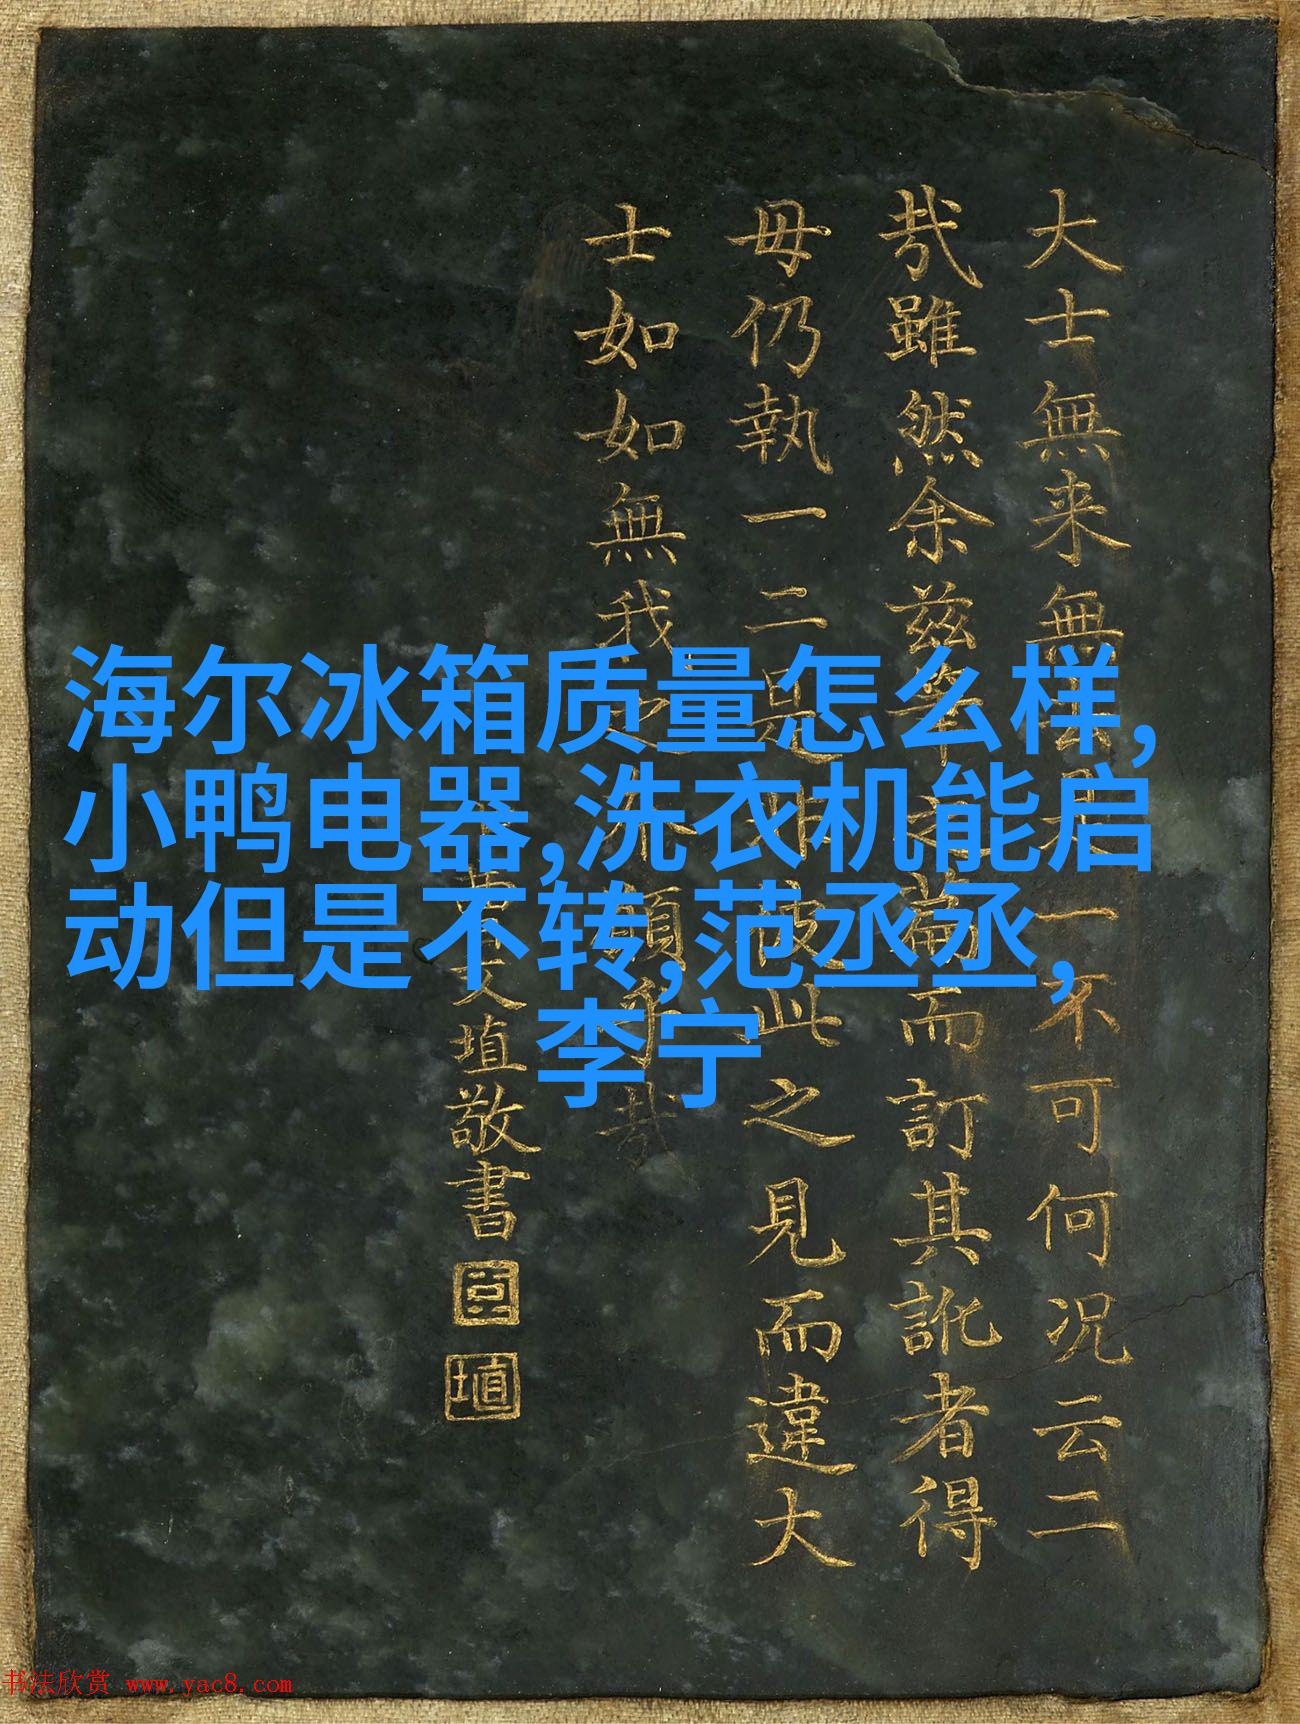 海尔冰箱质量怎么样,
小鸭电器,洗衣机能启
动但是不转,范丞丞,
李宁
大士無来無去一不可何况云二
哉雖然余兹而訂其訛者得
毋仍執一二是非彼此之見而違大
士如如無我之願乎哉
曹文埴敬書
臣
埴
书法欣赏 www.yac8.com